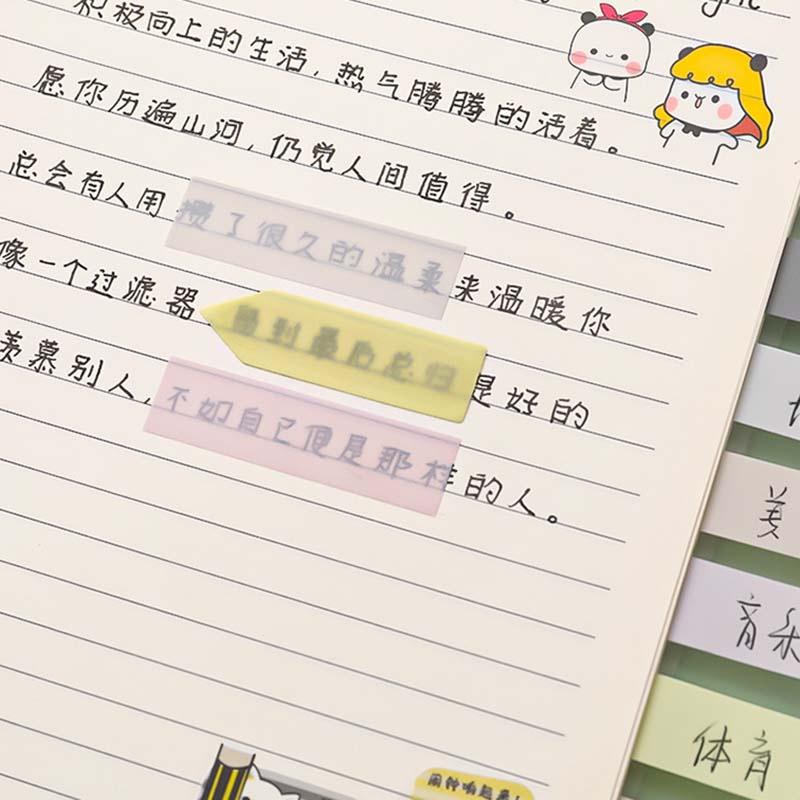 积极向上的生活，热气腾腾的活着。
愿你历遍山河，仍觉人间值得。
总会有人用攒了很久的温柔来温暖你
像一个过滤器 留到最后总归是好的
羡慕别人，不如自己便是那样的人。
美
音乐
体育
闹钟响起来！